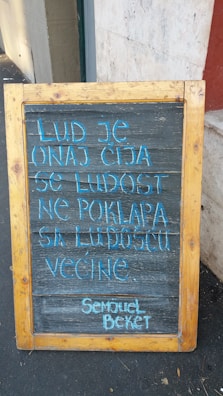 LUD JE
ONAJ ČIJA
SE LUDOST
NE POKLAPA
SA LUDOŠĆU
VEĆINE.
SEMJUEL
BEKET